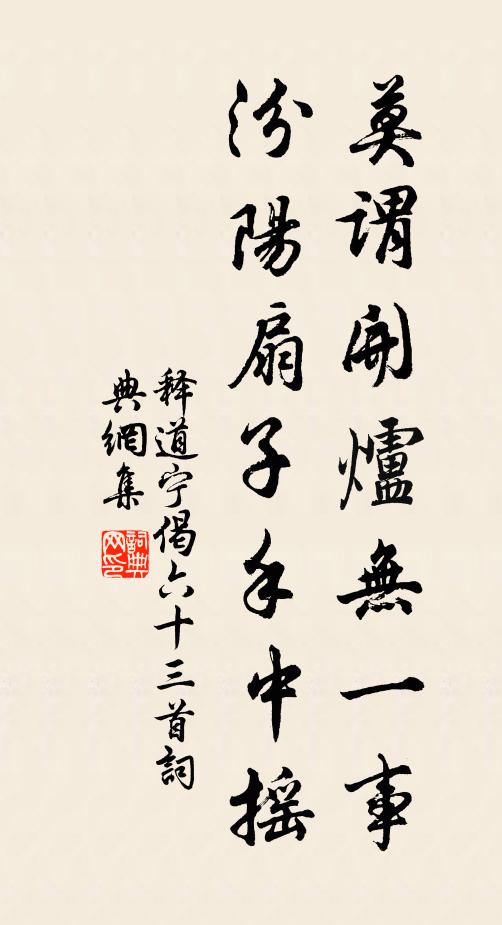 莫謂開爐無一事
汾陽扇子手中摇
释道宁偈六十三首詞
典網集
詞典网印